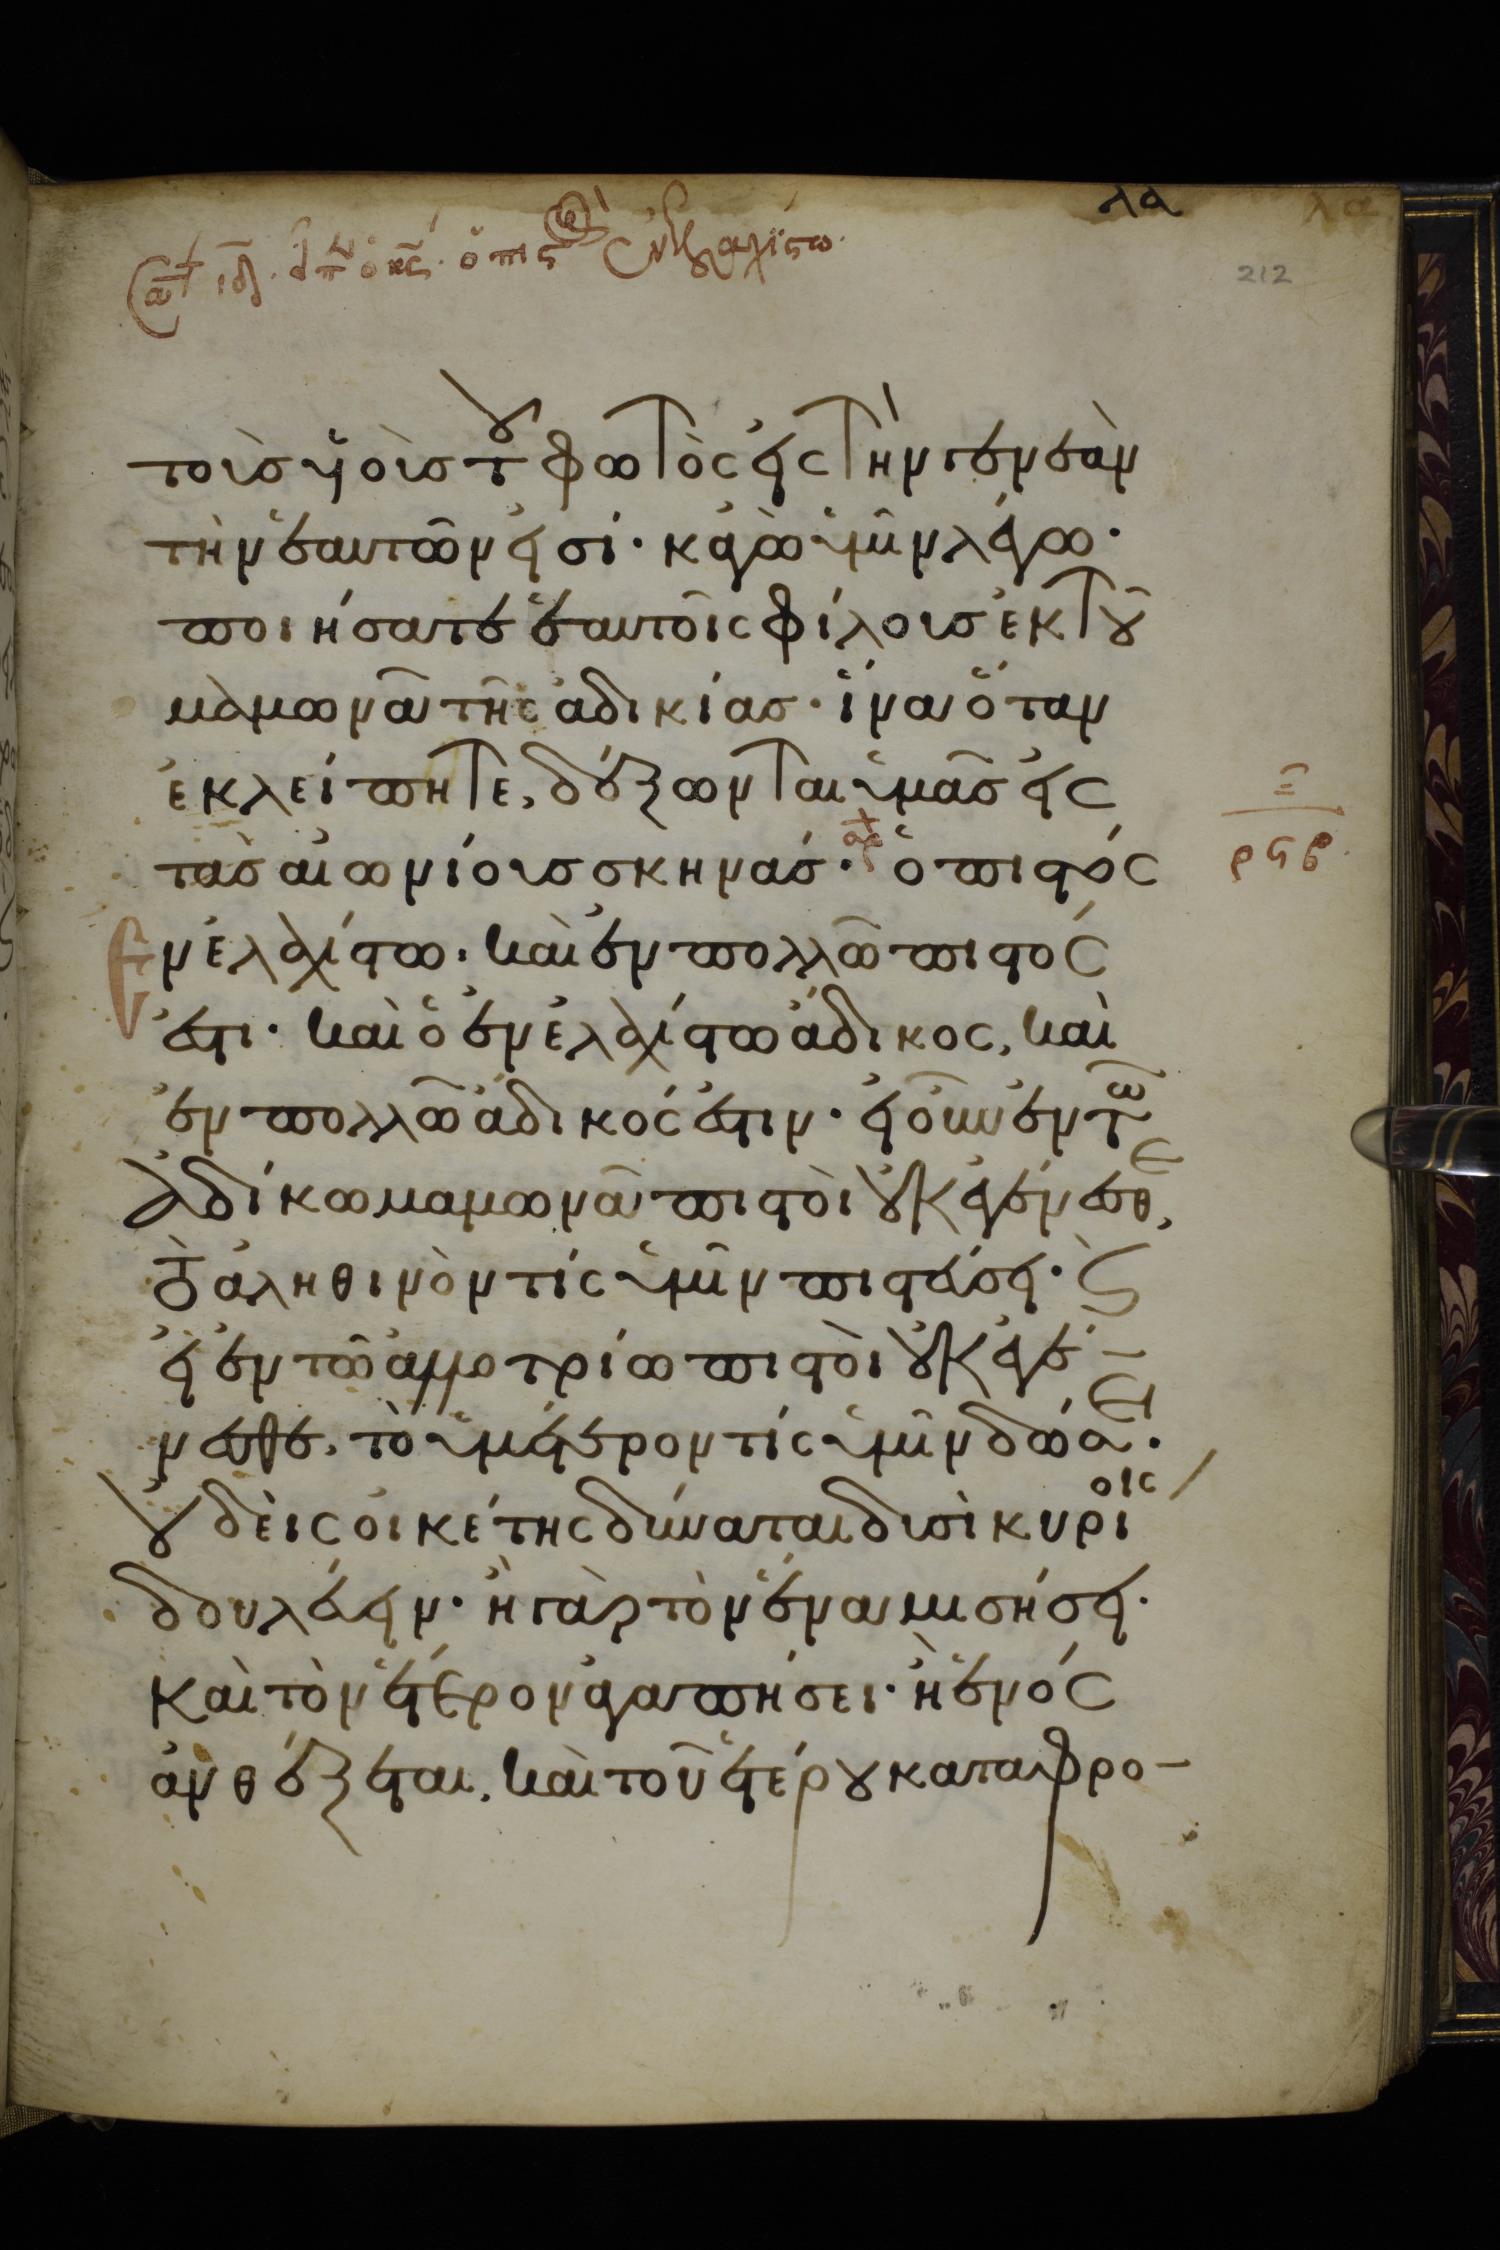 λα
212
τοὺς υἱοὺς τοῦ φωτὸς εἰς τὴν γενεὰν
τὴν ἑαυτῶν εἰσί· κἀγὼ ὑμῖν λέγω·
ποιήσατε ἑαυτοῖς φίλους ἐκ τοῦ
μαμωνᾶ τῆς ἀδικίας· ἵνα ὅταν
ἐκλείπητε, δέξωνται ὑμᾶς εἰς
τὰς αἰωνίους σκηνάς· ὁ πιστὸς
ἐν ἐλαχίστω· καὶ ἐν πολλῶ πιστός
ἐστι· καὶ ὁ ἐν ἐλαχίστω ἄδικος, καὶ
ἐν πολλῶ ἄδικός ἐστιν· εἰ οὖν ἐν τῶ
ἀδίκω μαμωνᾶ πιστοὶ οὐκ ἐγένεσθε,
τὸ ἀληθινὸν τίς ὑμῖν πιστεύσει· καὶ
εἰ ἐν τῶ ἀλλοτρίω πιστοὶ οὐκ ἐγέ-
νεσθε, τὸ ὑμέτερον τίς ὑμῖν δώσει·
οὐδεὶς οἰκέτης δύναται δυσὶ κυρίοις
δουλεύειν· ἢ γὰρ τὸν ἕνα μισήσει·
καὶ τὸν ἕτερον ἀγαπήσει· ἢ ἑνὸς
ἀνθέξεται, καὶ τοῦ ἑτέρου καταφρο-